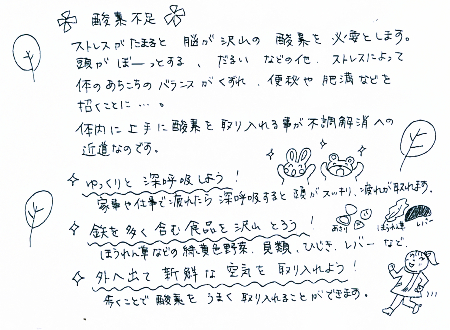 酸素不足
ストレスがたまると 脳が沢山の 酸素を 必要とします。
頭が ぼーっとする、だるい などの他、ストレスによって
体のあちこちの バランスが くずれ、便秘や 肥満などを
招くことに…。
体内に上手に酸素を 取り入れる事が不調解消への
近道なのです。
ゆっくりと 深呼吸しよう!
家事や仕事で疲れたら 深呼吸すると 頭がスッキリ、疲れが取れます。
鉄を多く含む食品を沢山 とろう!
あさり ほうれん草 レバー
ほうれん草などの 緑黄色野菜、貝類、ひじき、レバー など
外へ出て 新鮮な 空気を 取り入れよう!
歩くことで 酸素を うまく 取り入れることができます。